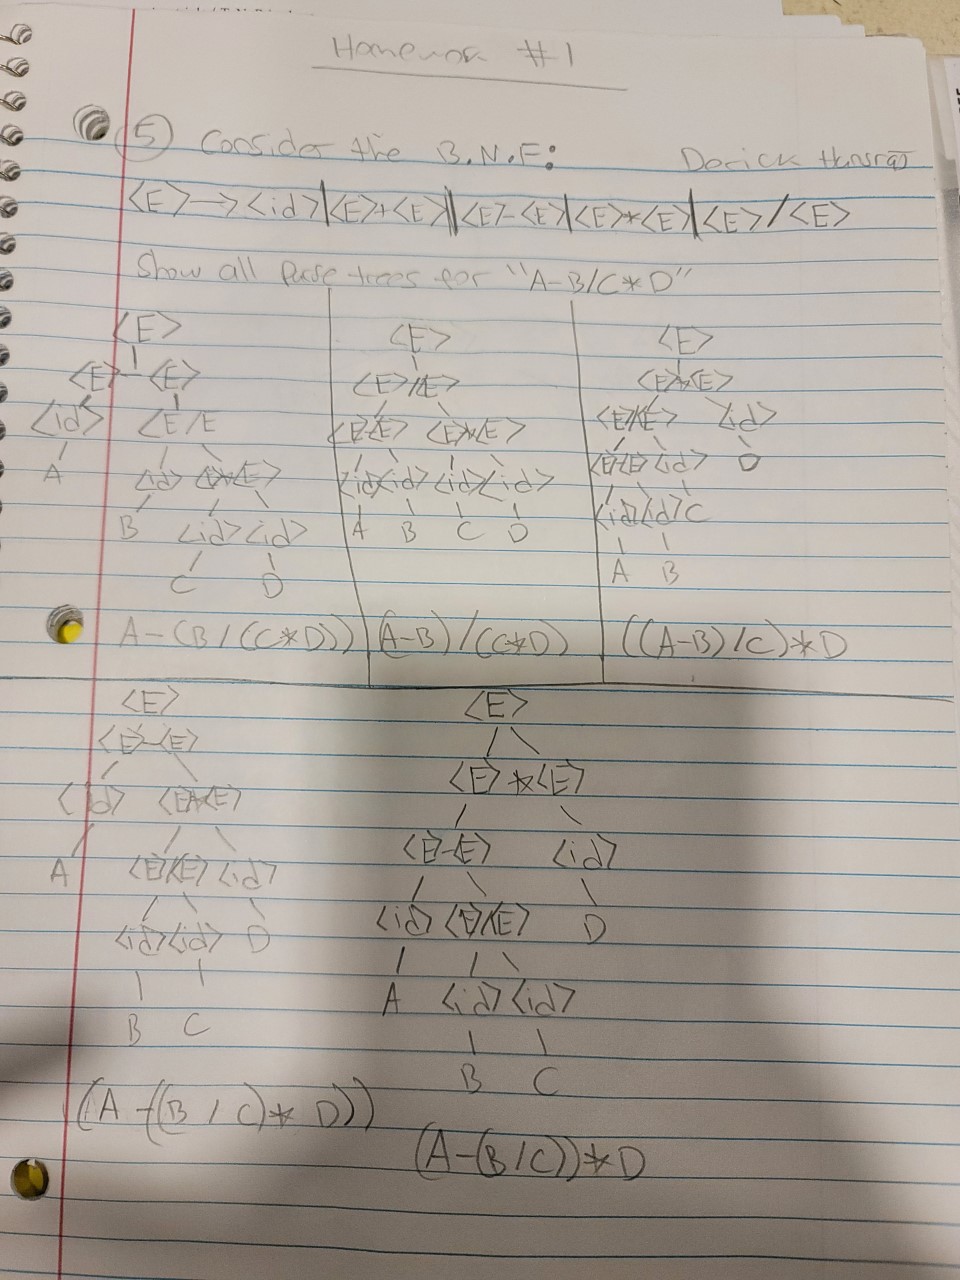 Homework #1
5) Consider the B.N.F:
Derick
<E> → <id>|<E>+<E>|<E>-<E>|<E>*<E>|<E>/<E>
Show all parse trees for "A-B/C*D"
<E>
<E> - <E>
<id> <E/E
A <id> <E>*<E>
B <id> <id>
C D
A-(B/(C*D))
<E>
<E>/<E>
<E>-<E> <E>*<E>
<id><id> <id><id>
A B C D
(A-B)/(C*D)
<E>
<E>*<E>
<E>/<E> <id>
<E>-<E> <id> D
<id><id> C
A B
((A-B)/C)*D
<E>
<E>-<E>
<id> <E>*<E>
A <E>/<E> <id>
<id><id> D
B C
(A-((B/C)*D))
<E>
<E>*<E>
<E>-<E> <id>
<id> <E>/<E> D
A <id> <id>
B C
(A-(B/C))*D